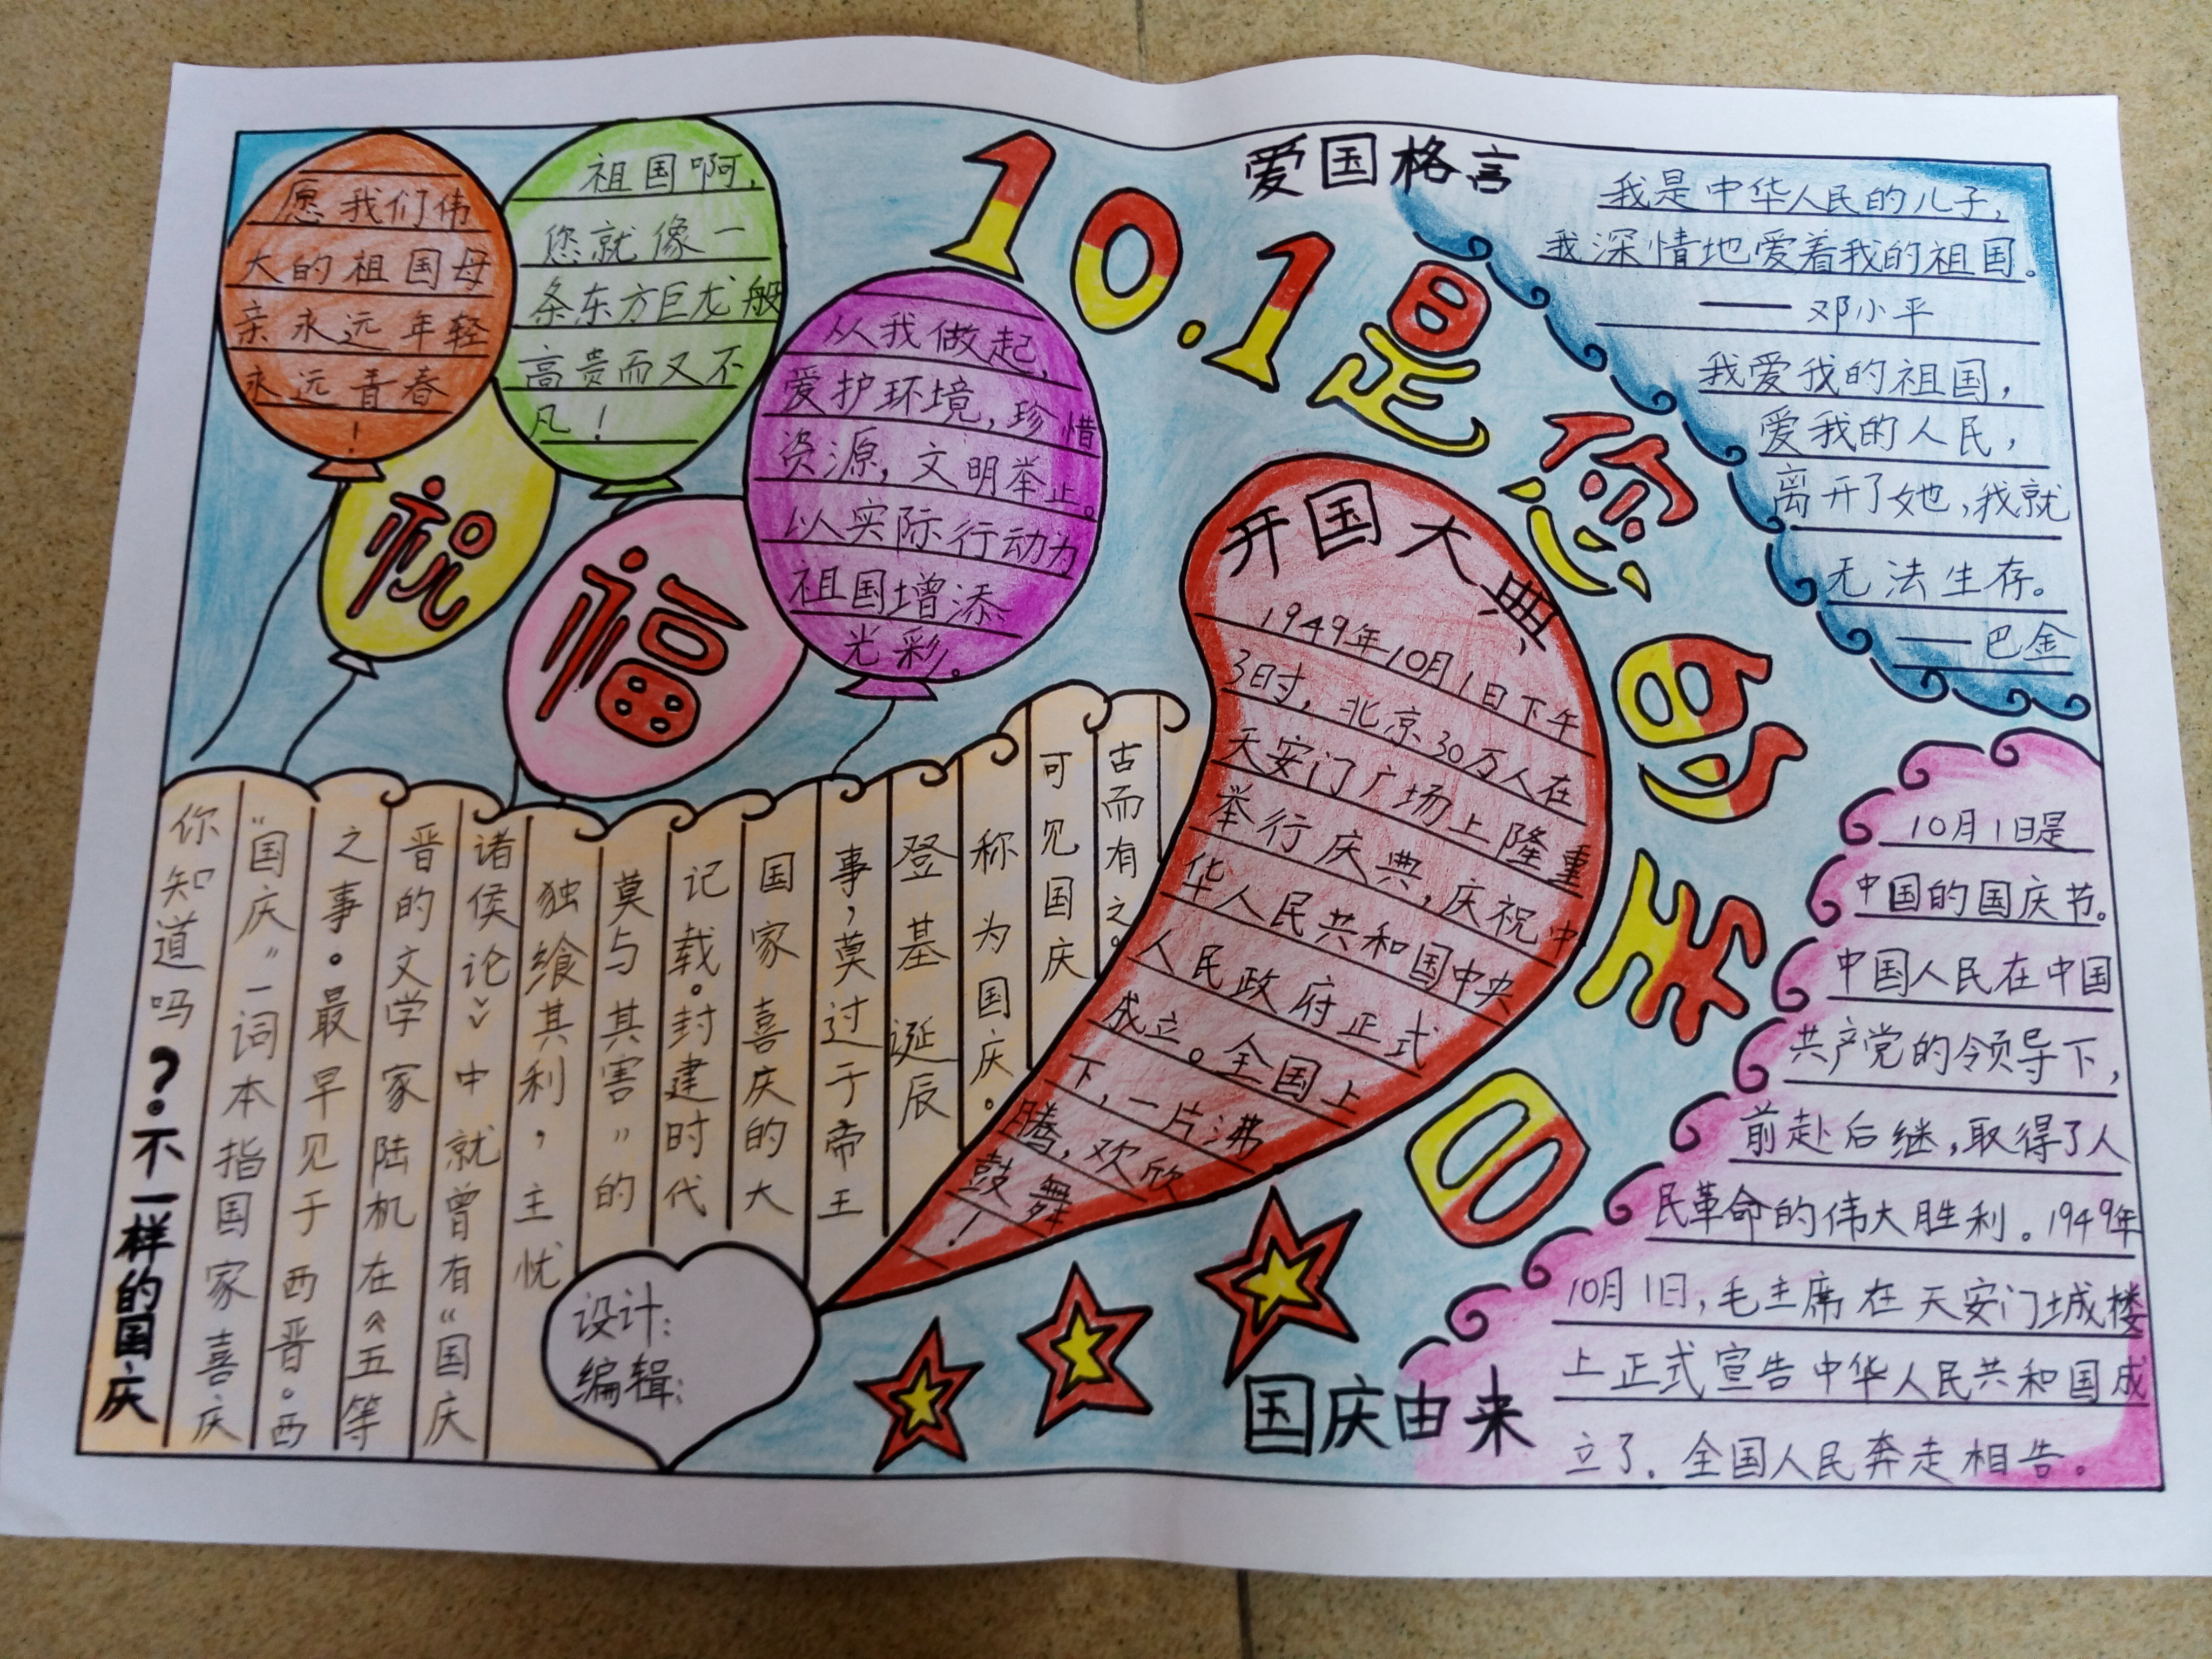 10.1是您的生日
愿我们伟
大的祖国母
亲永远年轻
永远青春
!
祖国啊,
您就像一
条东方巨龙般
高贵而又不
凡!
祝
福
从我做起,
爱护环境,珍惜
资源,文明举止。
以实际行动为
祖国增添
光彩。
爱国格言
我是中华人民的儿子,
我深情地爱着我的祖国。
——邓小平
我爱我的祖国,
爱我的人民,
离开了她,我就
无法生存。
——巴金
开国大典
1949年10月1日下午
3时,北京30万人在
天安门广场上隆重
举行庆典,庆祝中
华人民共和国中央
人民政府正式
成立。全国上
下,一片沸
腾,欢欣
鼓舞
!
你知道吗?不一样的国庆
“国庆”一词本指国家喜庆
之事。最早见于西晋。西
晋的文学家陆机在《五等
诸侯论》中就曾有“国庆
独飨其利,主忧
莫与其害”的
记载。封建时代
国家喜庆的大
事,莫过于帝王
登基诞辰
称为国庆。
可见国庆
古而有之。
设计:
编辑:
国庆由来
10月1日是
中国的国庆节。
中国人民在中国
共产党的领导下,
前赴后继,取得了人
民革命的伟大胜利。1949年
10月1日,毛主席在天安门城楼
上正式宣告中华人民共和国成
立了.全国人民奔走相告。